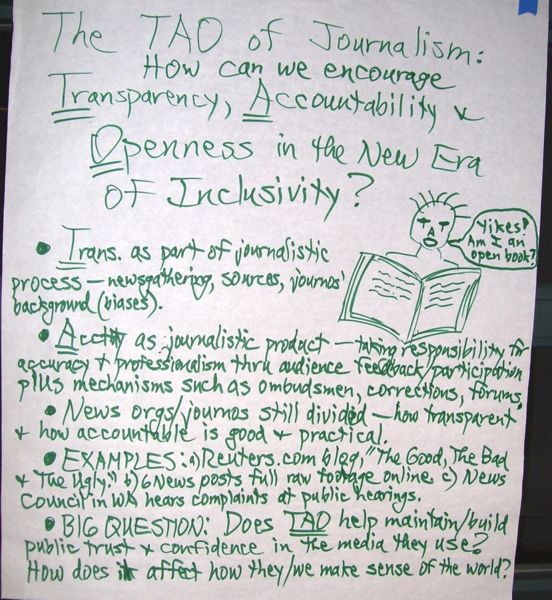 The TAO of Journalism:
How can we encourage
Transparency, Accountability &
Openness in the New Era
of Inclusivity?
Yikes!
Am I an
open book?
• Trans. as part of journalistic
process — newsgathering, sources, journos'
background (biases).
• Acct'y as journalistic product — taking responsibility for
accuracy & professionalism thru audience feedback/participation
plus mechanisms such as ombudsmen, corrections, forums,
• News orgs/journos still divided — how transparent
& how accountable is good & practical.
• EXAMPLES: a) Reuters.com blog, "The Good, The Bad
& The Ugly." b) 6 News posts full raw footage online. c) News
Council in WA hears complaints at public hearings.
• BIG QUESTION: Does TAO help maintain/build
public trust & confidence in the media they use?
How does it affect how they/we make sense of the world?